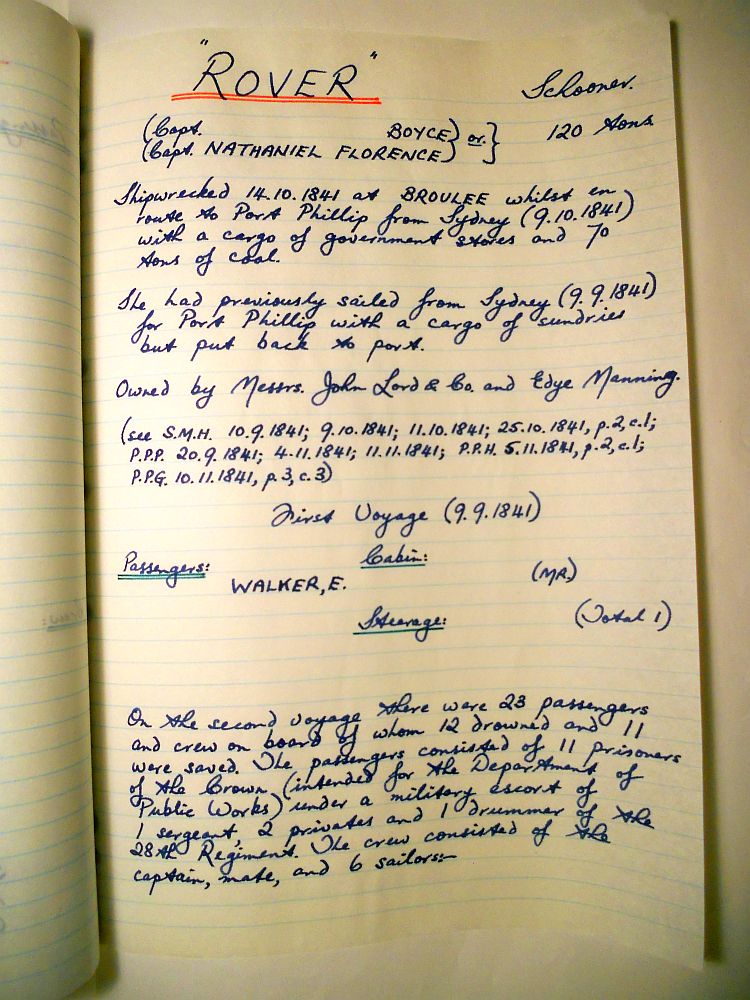 "ROVER"
Schooner.
(Capt. BOYCE) or }
(Capt. NATHANIEL FLORENCE)
120 tons.
Shipwrecked 14.10.1841 at BROULEE whilst en
route to Port Phillip from Sydney (9.10.1841)
with a cargo of government stores and 70
tons of coal.
She had previously sailed from Sydney (9.9.1841)
for Port Phillip with a cargo of sundries
but put back to port.
Owned by Messrs. John Lord & Co. and Edye Manning.
(see S.M.H. 10.9.1841; 9.10.1841; 11.10.1841; 25.10.1841, p.2, c.1;
P.P.P. 20.9.1841; 4.11.1841; 11.11.1841; P.P.H. 5.11.1841, p.2, c.1;
P.P.G. 10.11.1841, p.3, c.3)
First Voyage (9.9.1841)
Passengers: Cabin:
WALKER, E. (MR.)
Steerage: (Total 1)
On the second voyage there were 23 passengers
and crew on board of whom 12 drowned and 11
were saved. The passengers consisted of 11 prisoners
of the Crown (intended for the Department of
Public Works) under a military escort of
1 sergeant, 2 privates and 1 drummer of the
28th Regiment. The crew consisted of the
captain, mate, and 6 sailors:-